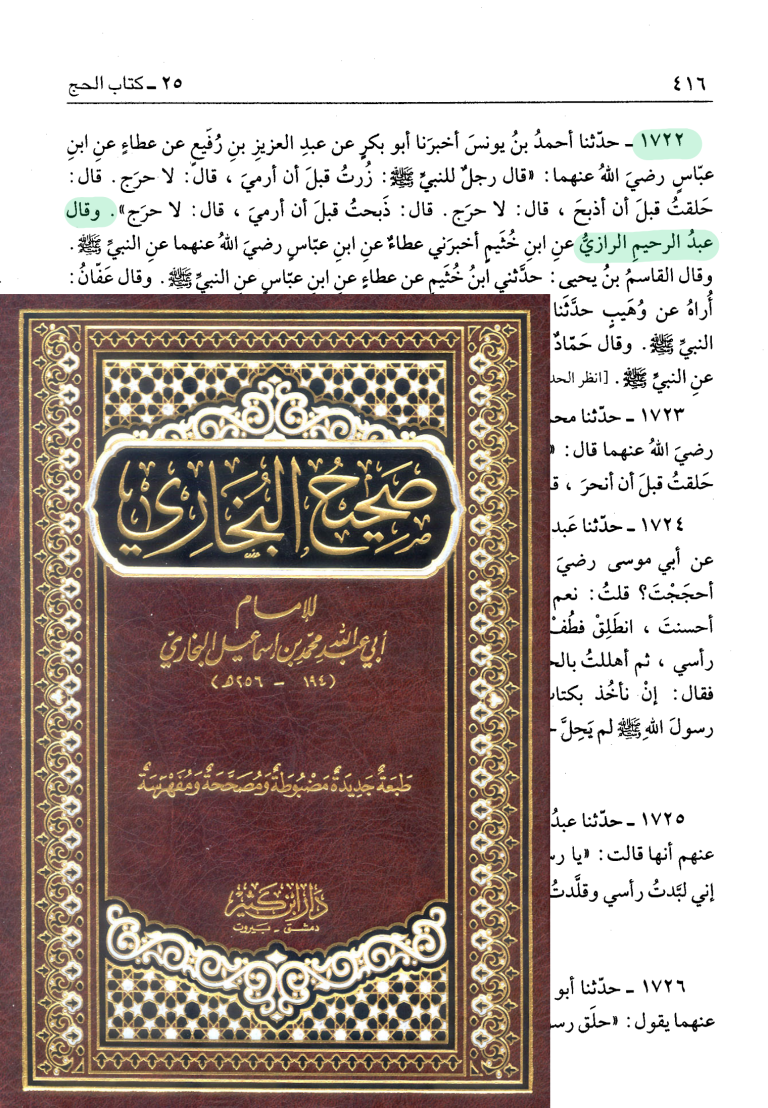 ٤١٦
٢٥ ـ كتاب الحج
١٧٢٢ ـ حدّثنا أحمدُ بنُ يونسَ أخبرَنا أبو بكرٍ عن عبدِ العزيزِ بنِ رُفَيعٍ عن عطاءٍ عنِ ابنِ
عبّاسٍ رضيَ اللهُ عنهما: «قال رجلٌ للنبيِّ ﷺ: زُرتُ قبلَ أن أرميَ ، قالَ: لا حرَج. قال:
حَلقتُ قبلَ أن أذبحَ ، قال: لا حرَج. قال: ذَبحتُ قبلَ أن أرميَ ، قال: لا حرَج». وقال
عبدُ الرحيمِ الرازيُّ عنِ ابنِ خُثَيمٍ أخبرَني عطاءٌ عنِ ابنِ عبّاسٍ رضيَ اللهُ عنهما عنِ النبيِّ ﷺ.
وقال القاسمُ بنُ يحيى: حدَّثني ابنُ خُثَيمٍ عن عطاءٍ عنِ ابنِ عبّاسٍ عنِ النبيِّ ﷺ. وقال عَفّانُ:
أُراهُ عن وُهَيبٍ حدَّثَنا
النبيِّ ﷺ. وقال حَمّادٌ
عنِ النبيِّ ﷺ. [انظر
١٧٢٣ ـ حدّثنا
رضيَ اللهُ عنهما قال:
حَلقتُ قبلَ أن أنحرَ ،
١٧٢٤ ـ حدّثنا
عن أبي موسى رضيَ
أحجَجْتَ؟ قلتُ: نعم
أحسنتَ ، انطَلِقْ فطُفْ
رأسي ، ثم أهللتُ
فقال: إنْ نأخُذ
رسولَ اللهِ ﷺ لم يَحِلَّ
١٧٢٥ ـ حدّثنا عبدُ
عنهم أنها قالت: «يا
إني لبَّدتُ رأسي وقلَّدتُ
١٧٢٦ ـ حدّثنا أبو
عنهما يقول: «حلَق
صَحِيحُ البُخَارِي
للإمام
أبي عبد الله محمد بن إسماعيل البخاريّ
(١٩٤ – ٢٥٦هـ)
طَبعَةٌ جَديدَةٌ مَضْبُوطَةٌ وَمُصَحَّحَةٌ وَمُفَهْرَسَةٌ
دَار ابْن كَثير
دمشق - بيروت